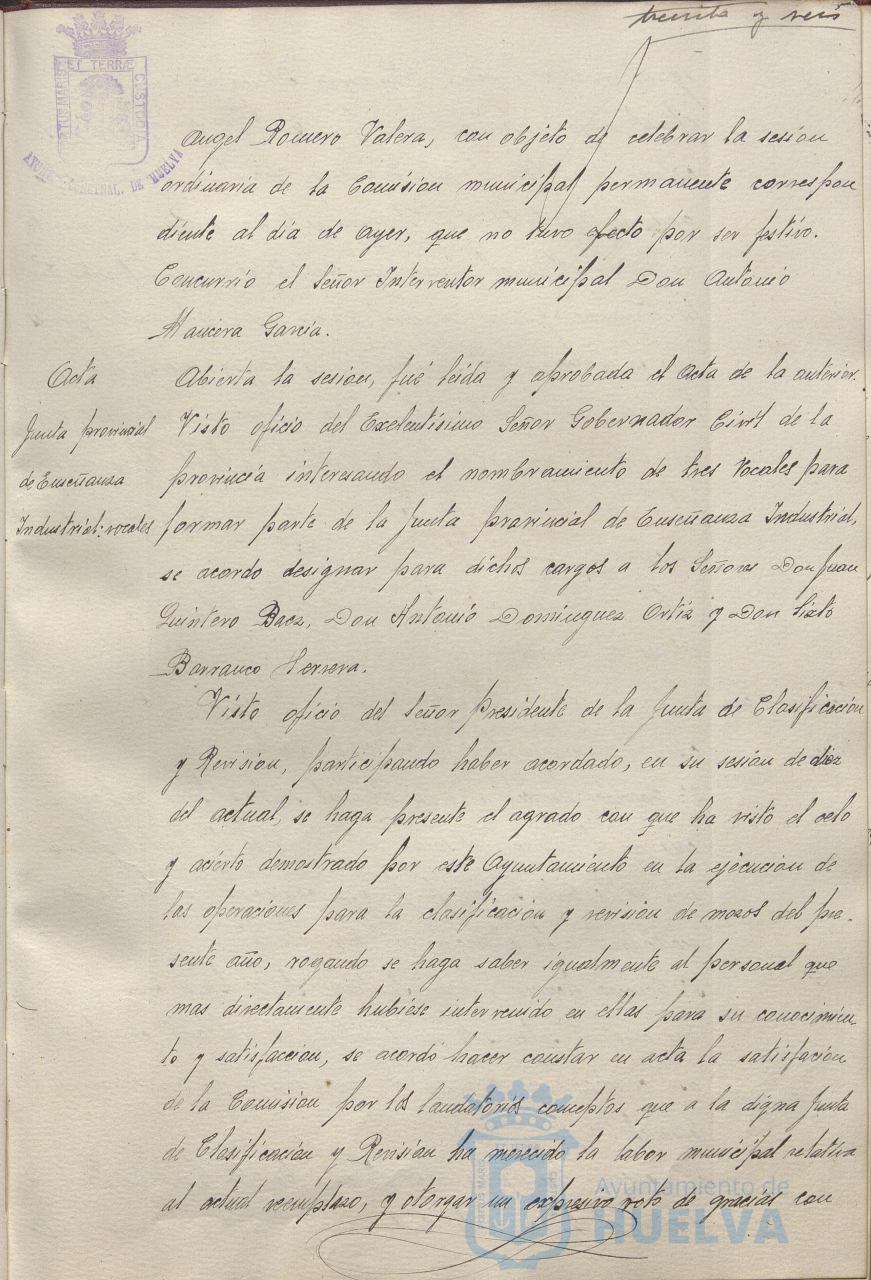 treinta y seis
PORTUS MARIS ET TERRÆ CUSTODIA
AYUNT. CONSTNAL. DE HUELVA
Angel Romero Valera, con objeto de celebrar la sesion
ordinaria de la Comision municipal permanente correspon
diente al dia de ayer, que no tuvo efecto por ser festivo.
Concurrio el Señor Interventor municipal Don Antonio
Mancera Garcia.
Acta
Abierta la sesion, fué leida y aprobada el acta de la anterior.
Junta provincial
de Enseñanza
Industrial: vocales
Visto oficio del Exelentisimo Señor Gobernador Civil de la
provincia interesando el nombramiento de tres Vocales para
formar parte de la Junta provincial de Enseñanza Industrial,
se acordo designar para dichos cargos a los Señores Don Juan
Quintero Baez, Don Antonio Dominguez Ortiz y Don Sixto
Barranco Herrera.
Visto oficio del Señor presidente de la Junta de Clasificacion
y Revision, participando haber acordado, en su sesion de diez
del actual, se haga presente el agrado con que ha visto el celo
y acierto demostrado por este Ayuntamiento en la ejecucion de
las operaciones para la clasificacion y revision de mozos del pre-
sente año, rogando se haga saber igualmente al personal que
mas directamente hubiese intervenido en ellas para su conocimien
to y satisfaccion, se acordó hacer constar en acta la satisfacion
de la Comision por los laudatorios conceptos que a la digna Junta
de Clasificacion y Revision ha merecido la labor municipal relativa
al actual reemplazo, y otorgar un expresivo voto de gracias con
Ayuntamiento de
HUELVA